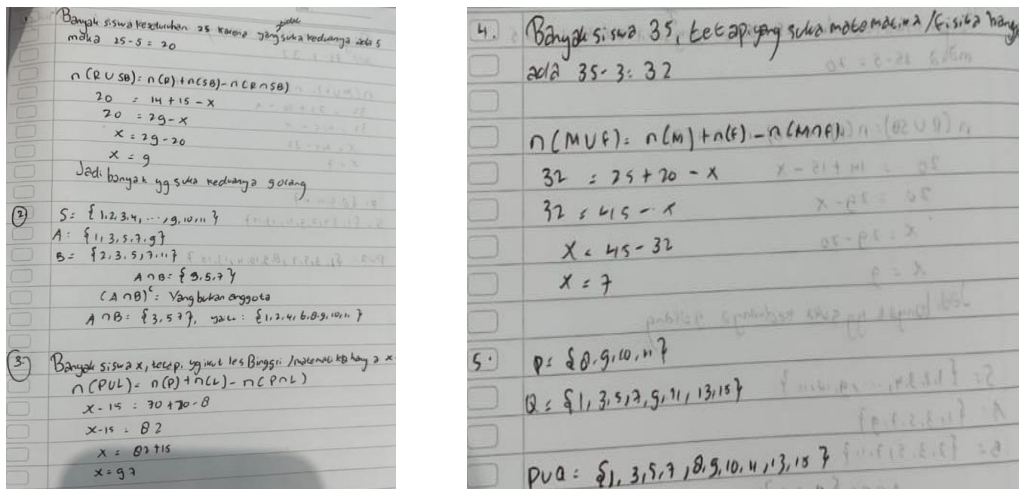 1. Banyak siswa keseluruhan 25 karena yang tidak suka keduanya ada 5
maka 25-5 = 20
n(RUSB) = n(R) + n(SB) - n(R∩SB)
20 = 14 + 15 - x
20 = 29 - x
x = 29 - 20
x = 9
Jadi banyak yg suka keduanya 9 orang
2 S = {1,2,3,4, ..., 9,10,11}
A = {1,3,5,7,9}
B = {2,3,5,7,11}
A∩B = {3,5,7}
(A∩B)ᶜ = Yang bukan anggota
A∩B = {3,5,7}, yaitu : {1,2,4,6,8,9,10,11}
3. Banyak siswa x, tetapi yg ikut les B inggris / matematika hanya x
n(PUL) = n(P) + n(L) - n(P∩L)
x - 15 = 70 + 20 - 8
x - 15 = 82
x = 82 + 15
x = 97
4. Banyak siswa 35, tetapi yang suka matematika / fisika hanya
ada 35 - 3 = 32
n(MUF) = n(M) + n(F) - n(M∩F)
32 = 25 + 20 - x
32 = 45 - x
x = 45 - 32
x = 7
5. P = {8,9,10,11}
Q = {1,3,5,7,9,11,13,15}
PUQ = {1,3,5,7,8,9,10,11,13,15}